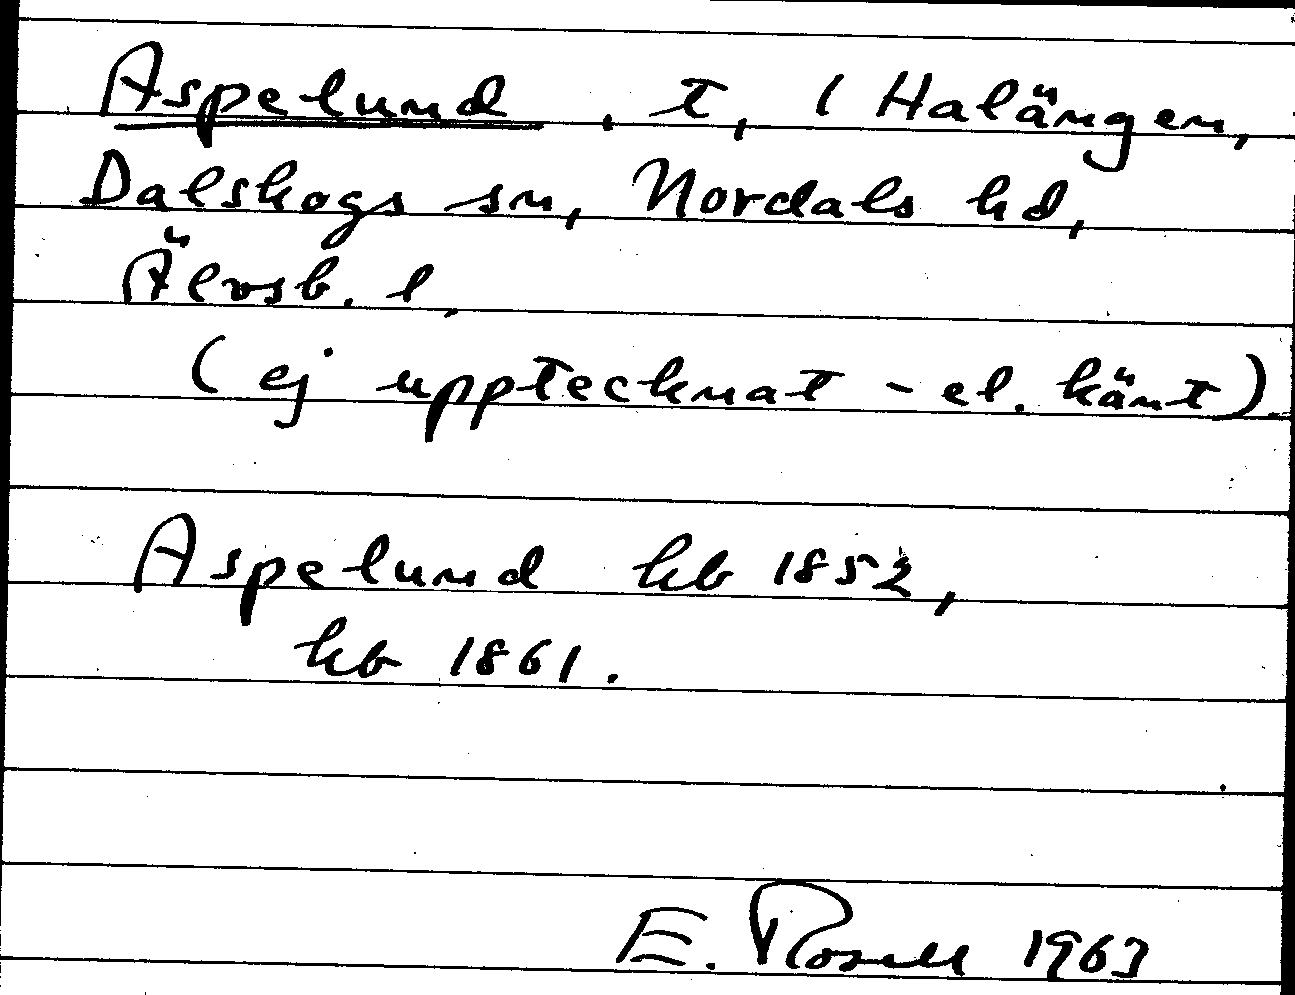 Aspelund, t, / Halängen,
Dalskogs sn, Nordals hd,
Älvsb. l,
(ej upptecknat - el. känt).
Aspelund hb 1852,
hb 1861.
E. Rosell 1963